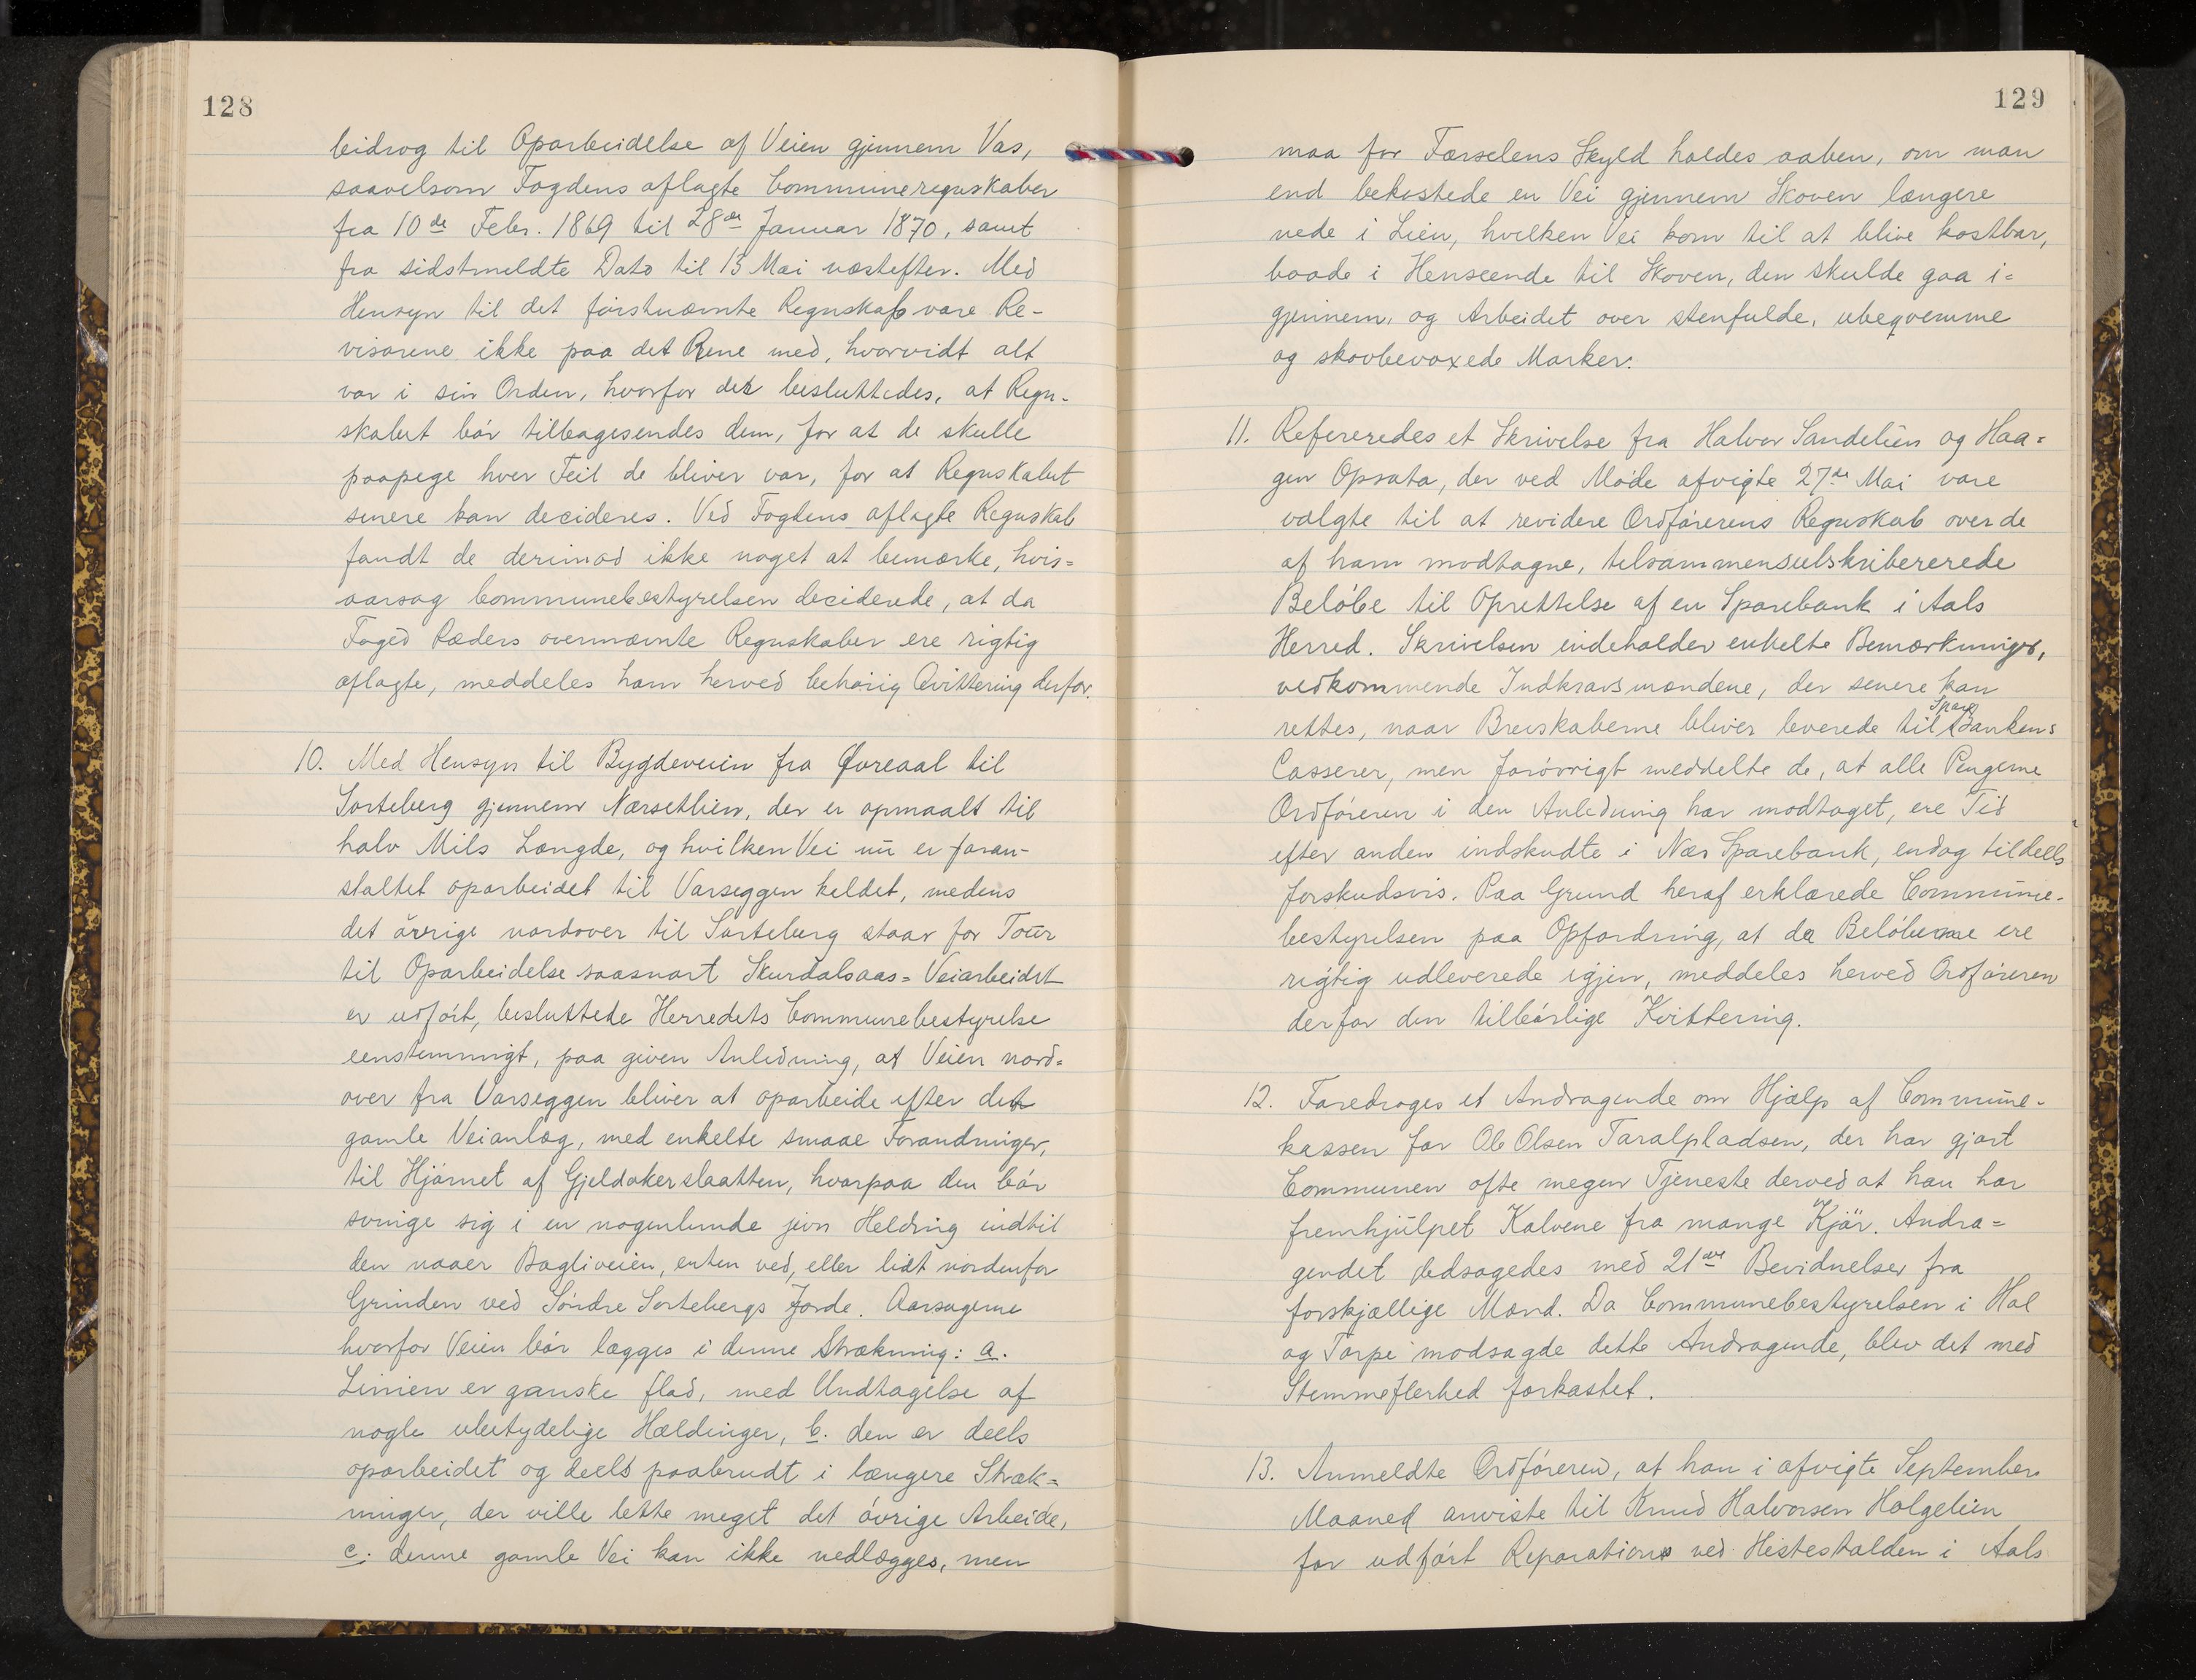 128
bidrog til Oparbeidelse af Veien gjennem Vas,
saavelsom Fogdens aflagte Communeregnskaber
fra 10de Febr. 1869 til 28de Januar 1870, samt
fra sidstmeldte Dato til 13 Mai næstefter. Med
Hensyn til det førstnævnte Regnskab vare Re-
visorene ikke paa det Rene med, hvorvidt alt
var i sin Orden, hvorfor det besluttedes, at Regn-
skabet bør tilbagesendes dem, for at de skulle
paapege hver Feil de bliver var, for at Regnskabet
senere kan decideres. Ved Fogdens aflagte Regnskab
fandt de derimod ikke noget at bemærke, hvis=
aarsag Communebestyrelsen deciderede, at da
Foged Ræders overnævnte Regnskaber ere rigtig
aflagte, meddeles ham herved behørig Qvittering derfor.
10. Med Hensyn til Bygdeveien fra Øvreaal til
Sorteberg gjennem Nærsetlien, der er opmaalt til
halv Mils Længde, og hvilken Vei nu er foran-
staltet oparbeidet til Varseggen keldet, medens
det øvrige nordover til Sorteberg staar for Tour
til Oparbeidelse saasnart Skurdalsaas=Veiarbeidet
er udført, besluttede Herredets Communebestyrelse
eenstemmigt, paa given Anledning, at Veien nord=
over fra Varseggen bliver at oparbeide efter det
gamle Veianlæg, med enkelte smaae Forandringer,
til Hjørnet af Gjeldokerslaatten, hvorpaa den bør
svinge sig i en nogenlunde jevn Helding indtil
den naaer Bagliveien, enten ved, eller lidt nordenfor
Grinden ved Søndre Sortebergs Jorde. Aarsagerne
hvorfor Veien bør lægges i denne Strækning: a.
Linien er ganske flad, med Undtagelse af
nogle ubetydelige Hældinger, b. den er deels
oparbeidet og deels paabrudt i længere Stræk=
ninger, der ville lette meget det øvrige Arbeide,
c. denne gamle Vei kan ikke nedlægges, men
129
maa for Færselens Skyld holdes aaben, om man
end bekostede en Vei gjennem Skoven længere
nede i Lien, hvilken Vei kom til at blive kostbar,
baade i Henseende til Skoven, den skulde gaa i=
gjennem, og Arbeidet over stenfulde, ubeqvemme
og skovbevoxede Marker.
11. Refereredes et Skrivelse fra Halvor Sandelien og Haa=
gen Opsata, der ved Møde afvigte 27de Mai vare
valgte til at revidere Ordførerens Regnskab over de
af ham modtagne, tilsammensubskribererede
Beløbe til Oprettelse af en Sparebank i Aals
Herred. Skrivelsen indeholder enkelte Bemærkninger,
vedkommende Indkravsmændene, der senere kan
rettes, naar Brevskaberne bliver leverede til Spare Bankens
Casserer, men forøvrigt meddelte de, at alle Pengerne
Ordføreren i den Anledning har modtaget, ere Tid
efter anden indskudte i Næs Sparebank, endog tildeels
forskudsvis. Paa Grund heraf erklærede Commune-
bestyrelsen paa Opfordring, at da Beløbene ere
rigtig udleverede igjen, meddeles herved Ordføreren
derfor den tilbørlige Kvittering.
12. Foredroges et Andragende om Hjælp af Commune-
kassen for Ole Olsen Taralpladsen, der har gjort
Communen ofte megen Tjeneste derved at han har
fremhjülpet Kalvene fra mange Kjör. Andra=
gendet ledsagedes med 21de Bevidnelser fra
forskjællige Mænd. Da Communebestyrelsen i Hol
og Torpe modsagde dette Andragende, blev det med
Stemmeflerhed forkastet.
13. Anmeldte Ordføreren, at han i afvigte September
Maaned anviste til Knud Halvorsen Holgelien
for udført Reparation ved Hestestalden i Aals